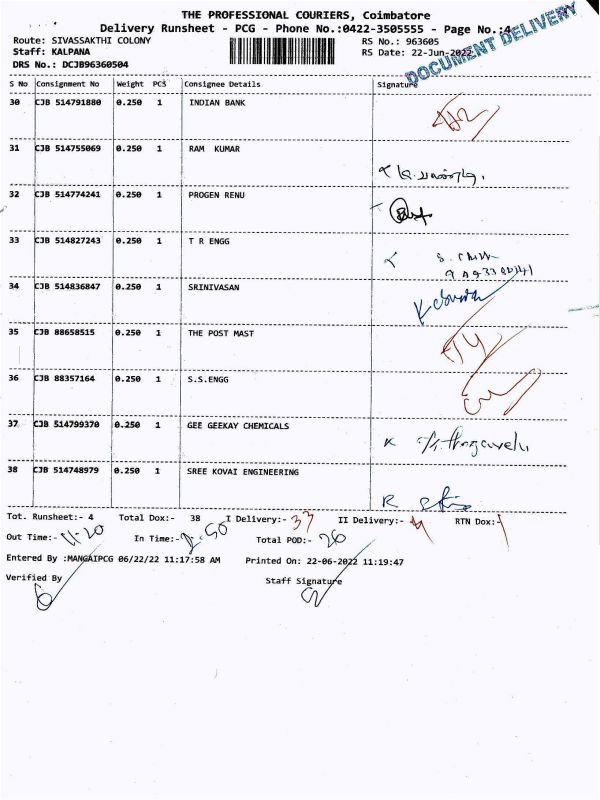 THE PROFESSIONAL COURIERS, Coimbatore
Delivery Runsheet - PCG - Phone No.:0422-3505555 - Page No.:4
DOCUMENT DELIVERY
Route: SIVASSAKTHI COLONY RS No.: 963605
Staff: KALPANA RS Date: 22-Jun-2022
DRS No.: DCJB96360504
S No Consignment No Weight PCS Consignee Details Signature
30 CJB 514791880 0.250 1 INDIAN BANK
31 CJB 514755069 0.250 1 RAM KUMAR
32 CJB 514774241 0.250 1 PROGEN RENU
33 CJB 514827243 0.250 1 T R ENGG
34 CJB 514836847 0.250 1 SRINIVASAN
35 CJB 88658515 0.250 1 THE POST MAST
36 CJB 88357164 0.250 1 S.S.ENGG
37 CJB 514799370 0.250 1 GEE GEEKAY CHEMICALS
38 CJB 514748979 0.250 1 SREE KOVAI ENGINEERING
Tot. Runsheet:- 4 Total Dox:- 38 I Delivery:- 33 II Delivery:- 4 RTN Dox:- 1
Out Time:- 11-20 In Time:- Total POD:- 26
Entered By :MANGAIPCG 06/22/22 11:17:58 AM Printed On: 22-06-2022 11:19:47
Verified By Staff Signature